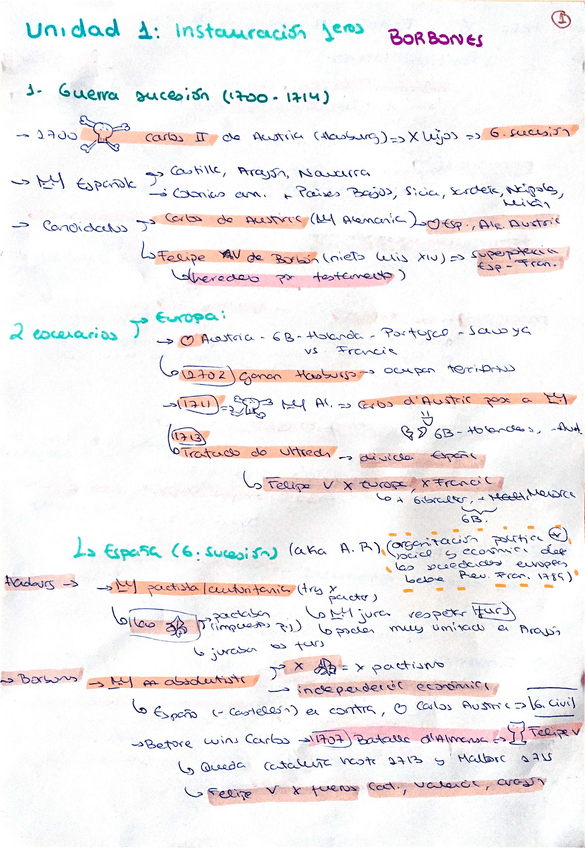 1
Unidad 1: Instauración 1eros BORBONES
1- Guerra sucesión (1700-1714)
→ 1700 Carlos II de Austria (Hasburg) => X hijos => G. sucesión
→ Española → Castilla, Aragón, Navarra
→ Colonias am. + Países Bajos, Sicia, Serdeña, Nápoles, Milán
→ Candidatos → Carlos de Austria (Alemania) → Esp., Ale. Austria
↳ Felipe V de Borbón (nieto Luis XIV) => superpotencia Esp-Fran.
↳ (heredero por testamento)
2 escenarios → Europa:
→ Austria - GB - Holanda - Portugal - Savoya
vs Francia
↳ 1702) Ganan Hasburgs → ocupan territorios
→ 1711 = Al. => Carlos d'Austria pasa a
GB - Holandeses,
1713
↳ Tratado de Utrech → divide España
↳ Felipe V X Europa, X Francia
↳ + Gibraltar, + Menorca
GB.
↳ España (G. sucesión) (aka A.R) (organización política
social y económica de
las sociedades europeas
before Rev. Fran. 1789)
Hasburgs → → pactista/autoritaria (tres x pactos)
↳ jura respetar furs
↳ poder muy limitado en Aragón
↳ juraba los furs
→ Borbons → absolutista → X = X pactismo
→ independencia económica
↳ España (- Castellón) en contra, Carlos Austria => G. Civil
→ Before wins Carlos → 1707) Batalla d'Almansa → Felipe V
↳ Queda Cataluña hasta 1713 y Mallorc 1715
↳ Felipe V X fueros Cat., Valencia, Aragón